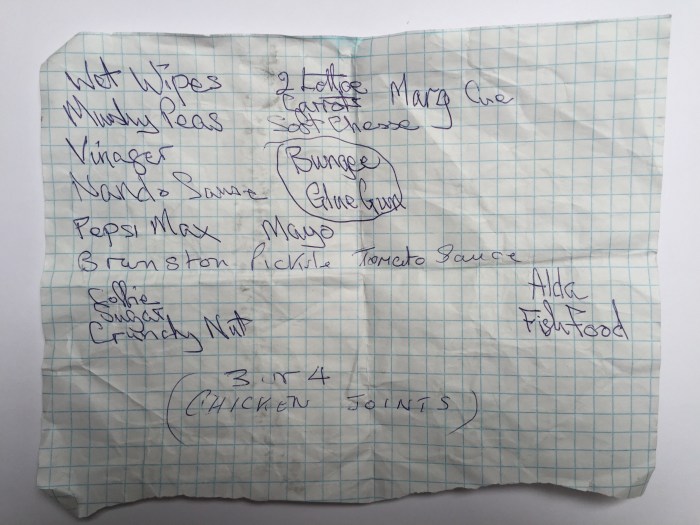 Wet Wipes
Mushy Peas
Vinager
Nando Sause
Pepsi Max Mayo
Branston Pickle Tomato Sauce
Coffie
Sugar
Crunchy Nut
2 Lottoe
Carrots
Soft Cheese
Marg Cue
Bungee
Glue Gun
Alda
Fish Food
3 or 4
(CHICKEN JOINTS)